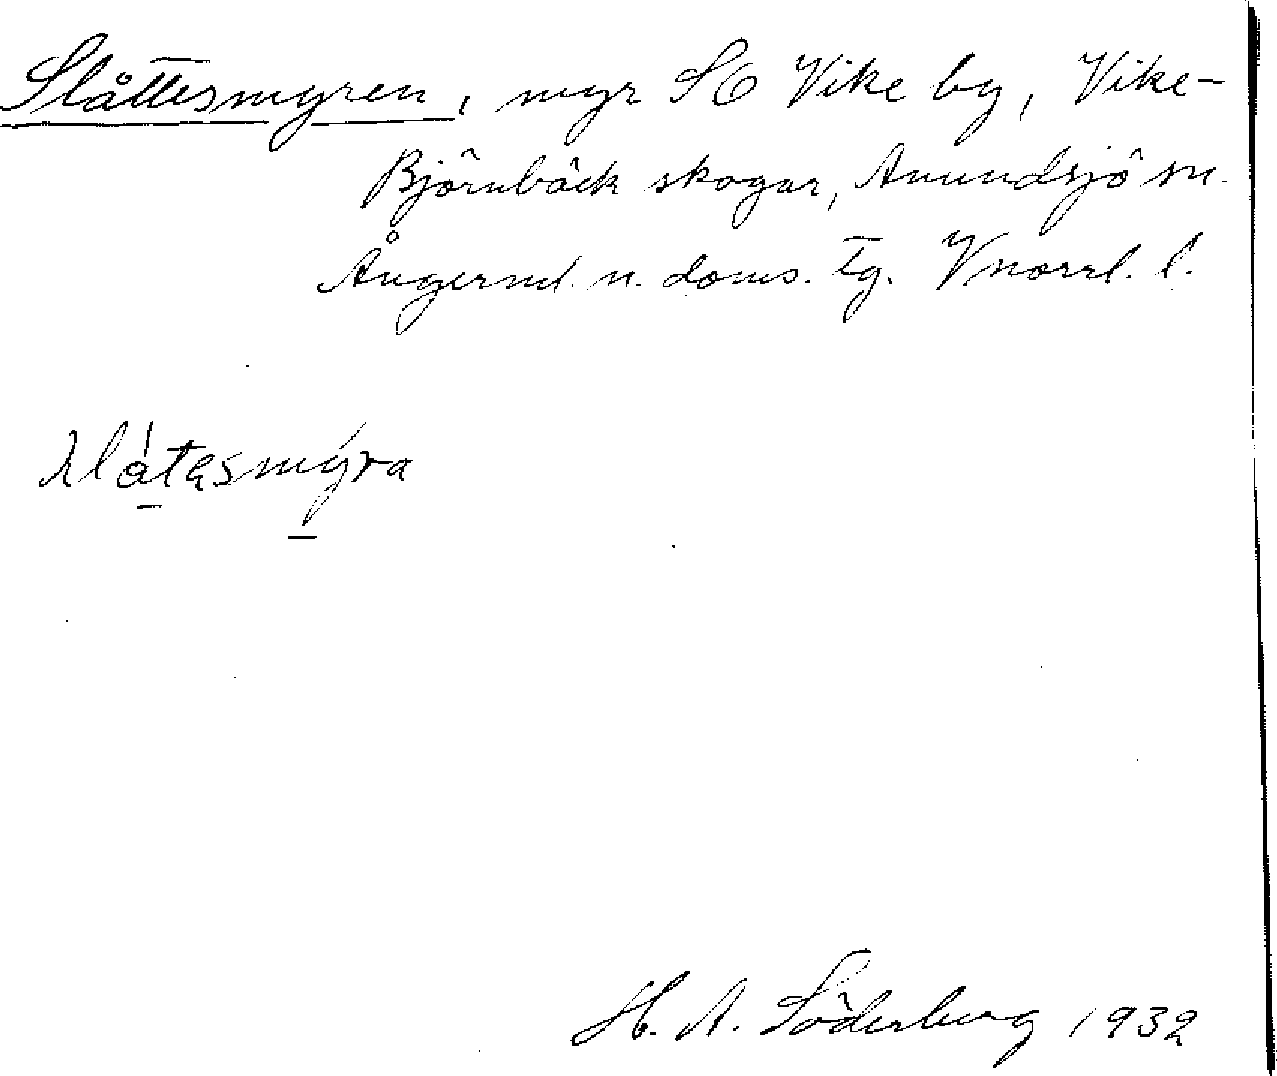 Slåttesmyren, myr SO Vike by, Vike-
Björnbäck skogar, Anundsjö sn.
Ångerml. n. doms. tg. Vnorrl. l.
slåtasmýra
H. A. Söderberg 1932